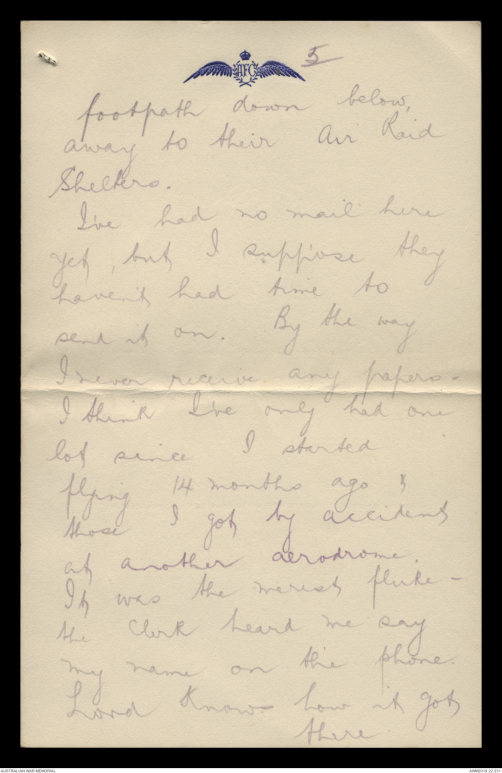 5
AFC
footpath down below,
away to their Air Raid
Shelters.
I've had no mail here
yet, but I suppose they
haven't had time to
send it on. By the way
I never receive any papers -
I think I've only had one
lot since I started
flying 14 months ago &
those I got by accident
at another aerodrome.
It was the merest fluke -
the Clerk heard me say
my name on the phone.
Lord Knows how it got
there
AUSTRALIAN WAR MEMORIAL